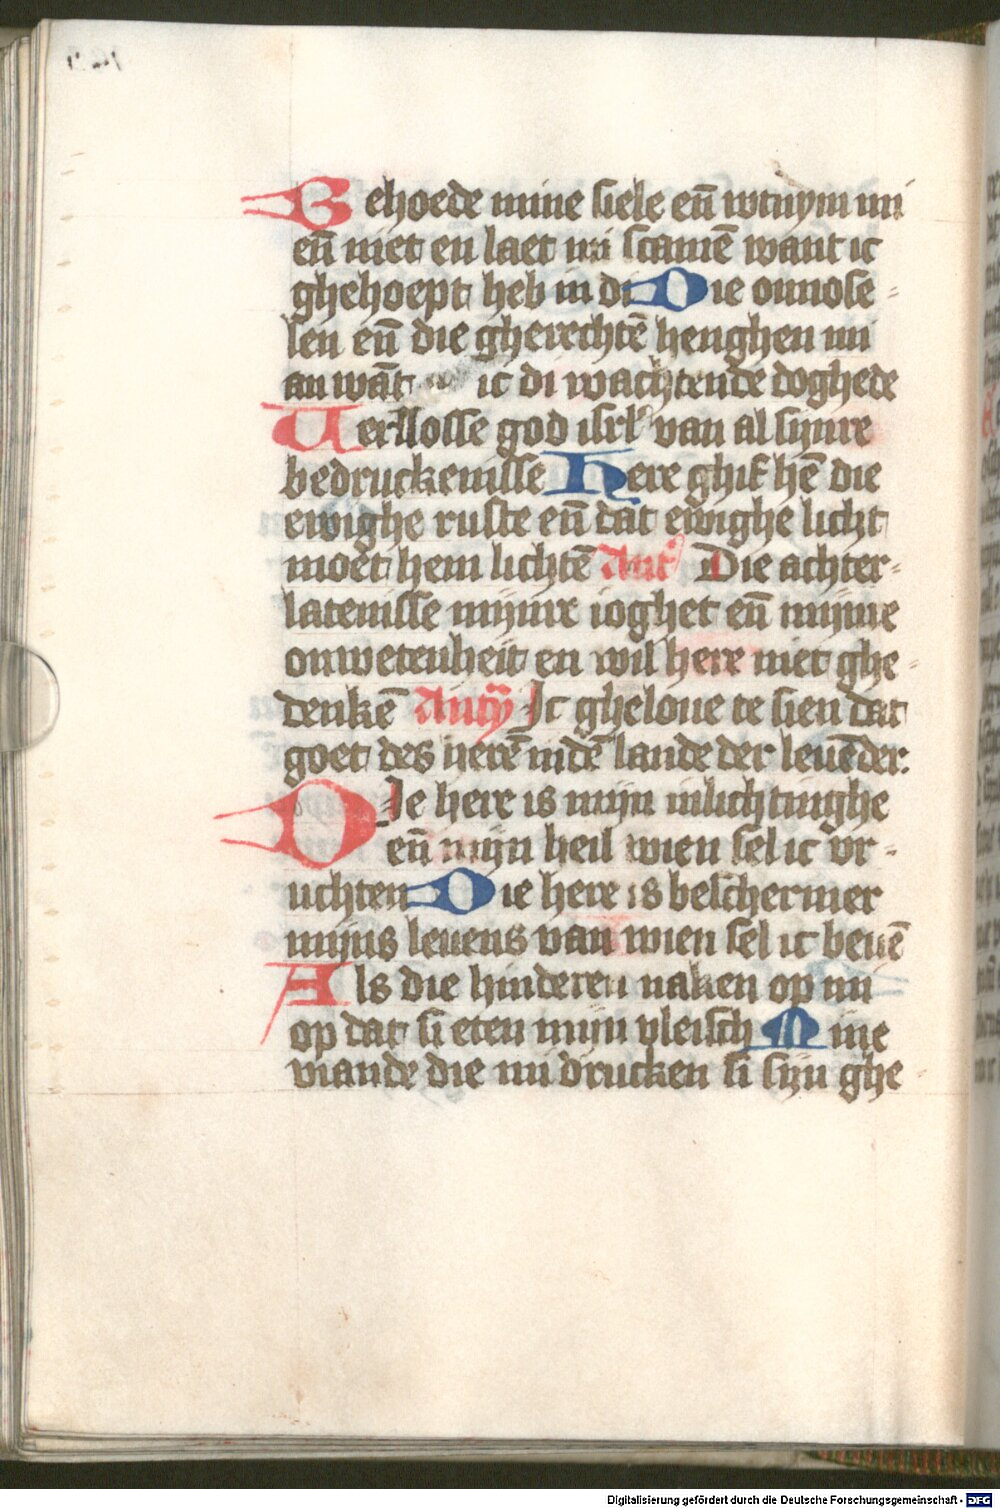 Behoede mine siele en̄ wtuym mi
en̄ niet en laet mi scamē want ic
ghehoept heb in di Die onnose-
len en̄ die gherechtē henghen mi
an wāt ic di wachtende doghede
Verlosse god isrl' van al sijnre
bedruckenisse Here ghif hē die
ewighe ruste en̄ dat ewighe licht
moet hem lichtē Ant' Die achter-
latenisse mijnre ioghet en̄ mijnre
onwetenheit en wil here niet ghe-
denkē Ic gheloue te sien dat
goet des herē indē lande der leuēder.
Die here is mijn inlichtinghe
en̄ mijn heil wien sel ic vr-
uchten Die here is beschermer
mijns leuens van wien sel ic beuē
Als die hinderen naken op mi
op dat si eten mijn vleisch Mine
viande die mi drucken si sijn ghe
Digitalisierung gefördert durch die Deutsche Forschungsgemeinschaft - DFG